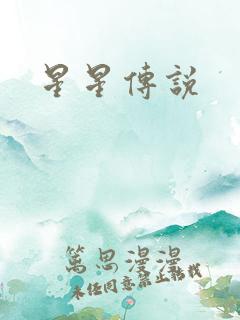 星星傳說
篤思漫漫
未经同意禁止转载